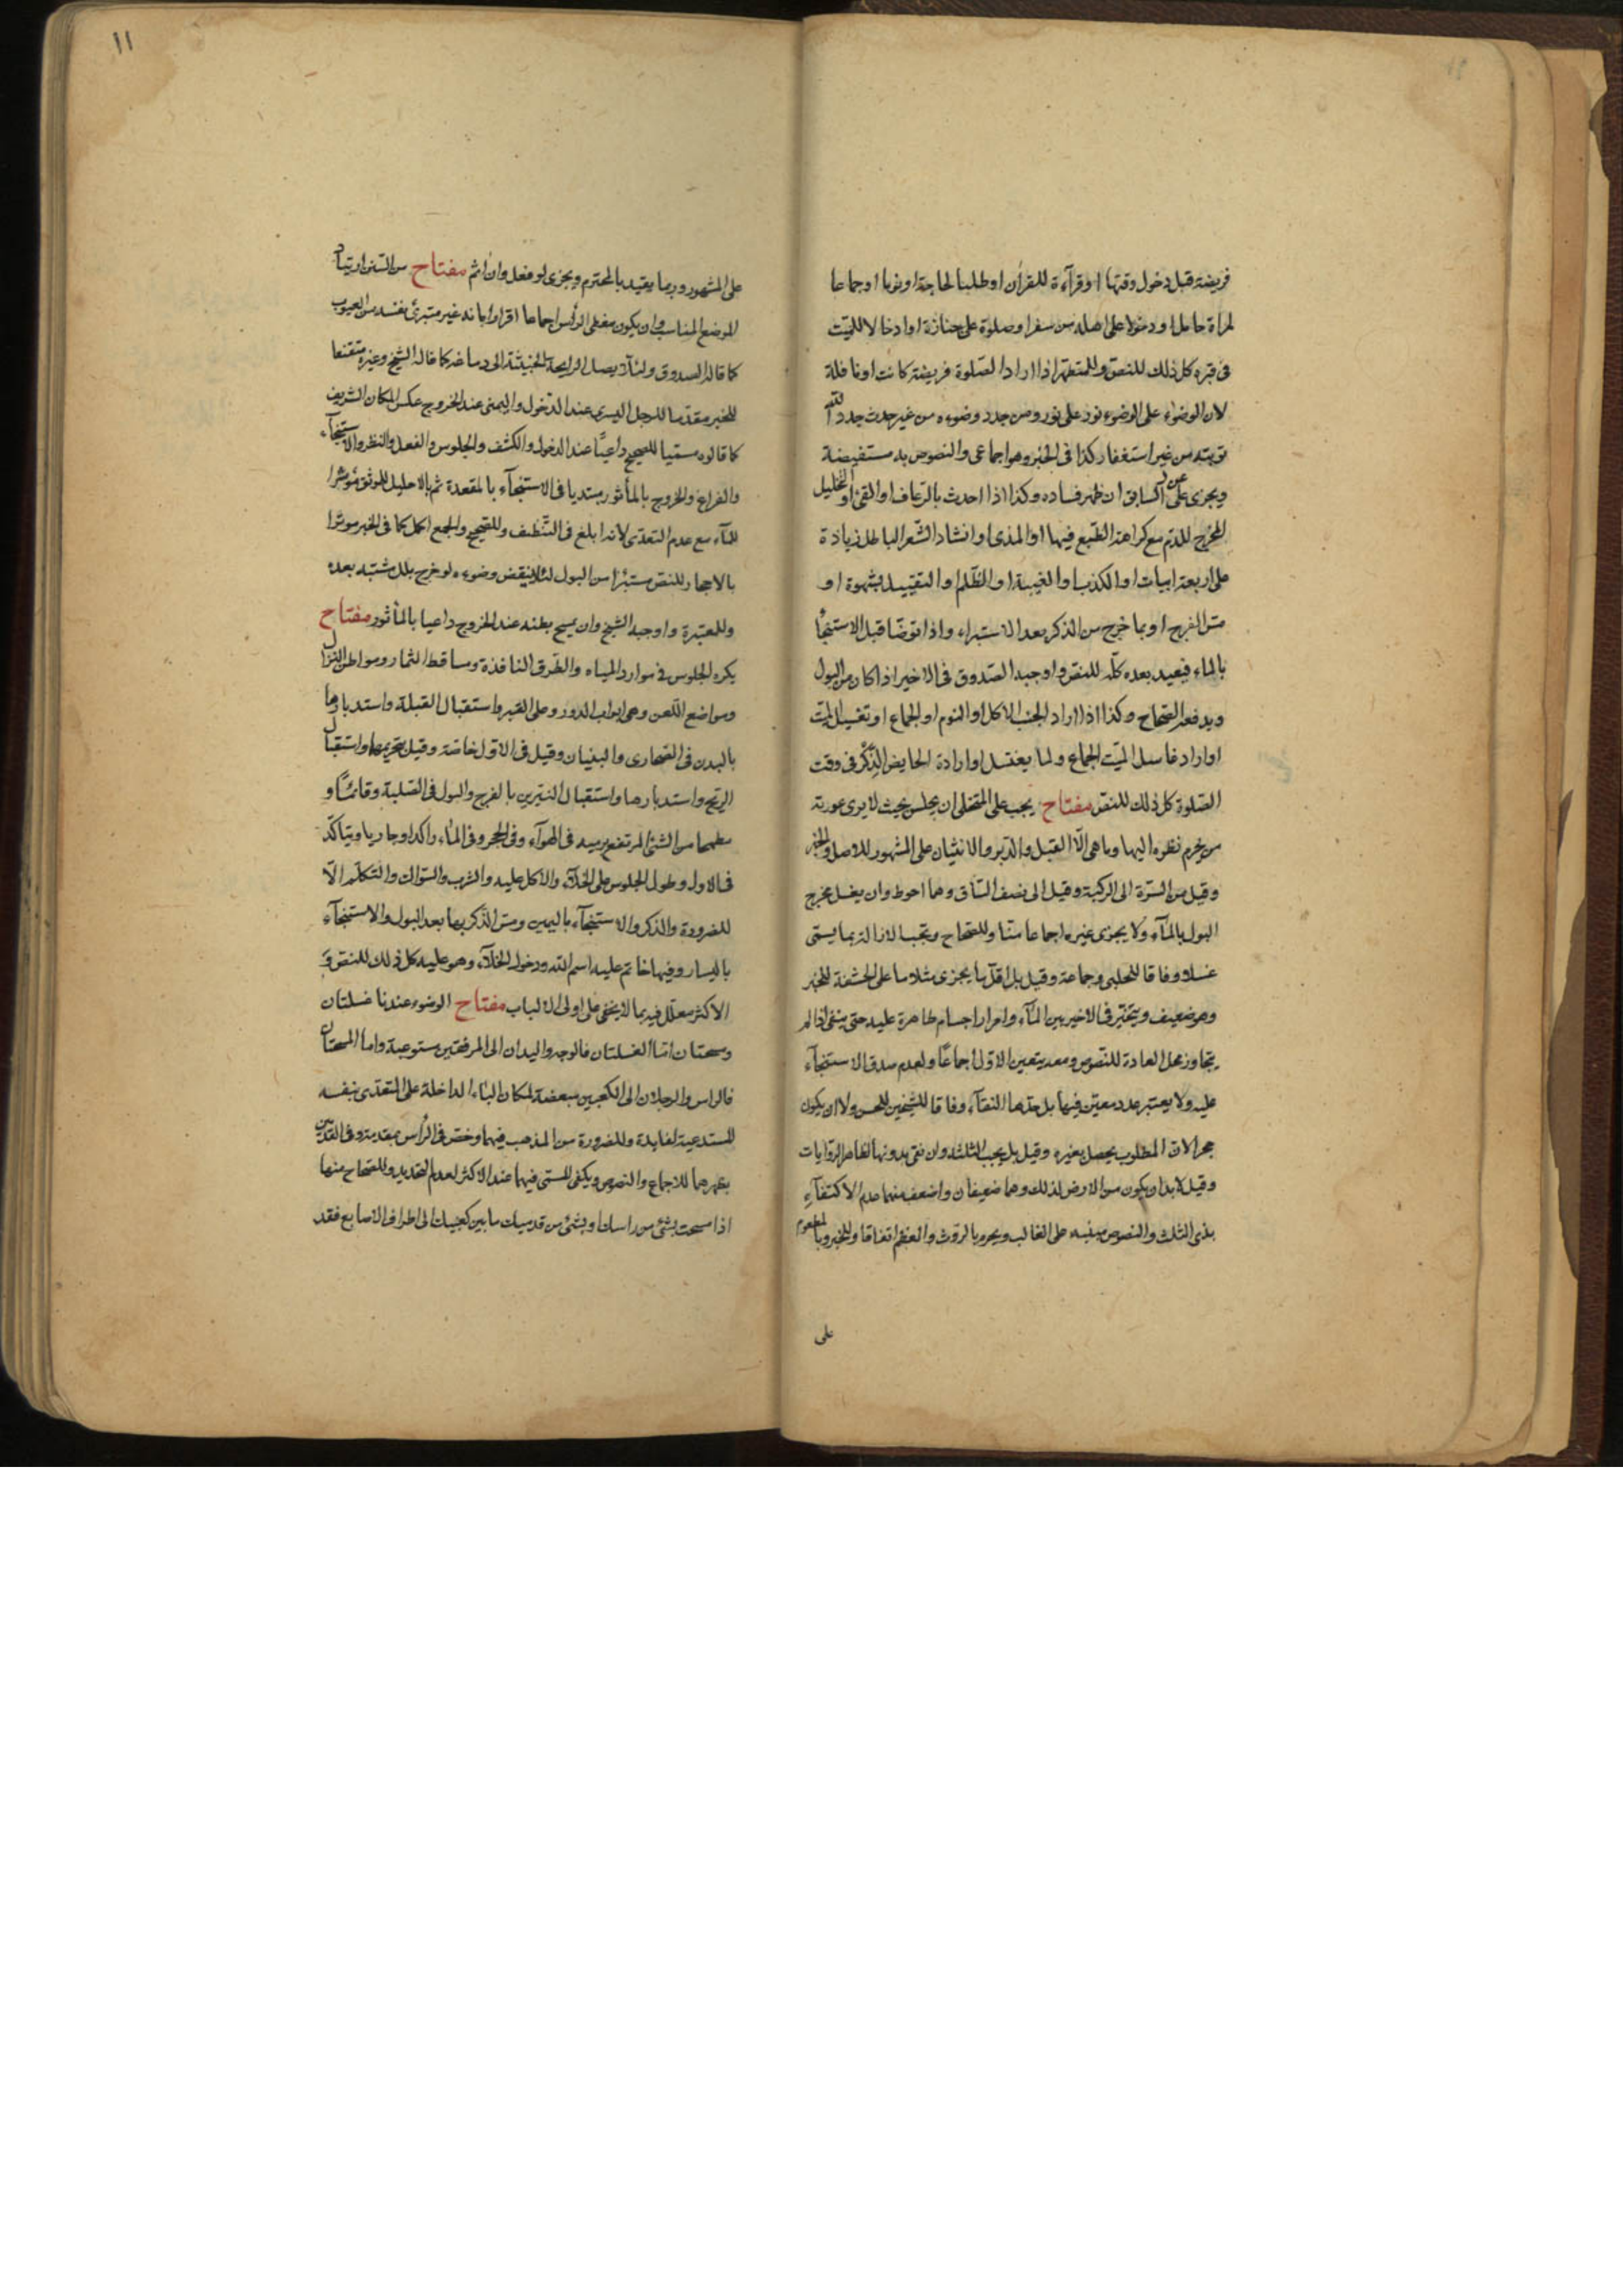 فريضة قبل دخول وقتها او قرآءة للقرآن او طلبا لحاجة او نوما او جماعا
لمراة حامل او دخولا على اهله من سفر او صلوة على جنازة او ادخالا للميّت
فى قبره كل ذلك للنصّ وللمتطهر اذا اراد الصّلوة فريضة كانت او نافلة
لان الوضوء على الوضوء نور على نور ومن جدد وضوءه من غير حدث جدد الله
توبته من غير استغفار كذا فى الخبر وهو اجماعى والنصوص به مستفيضة
ويجزى عن السابق ان ظهر فساده وكذا اذا احدث بالرّعاف او القئ او التخليل
المخرج للدّم مع كراهة الطّبع فيها او المذى او انشاد الشّعر الباطل زيادة
على اربعة ابيات او الكذب او الغيبة او الظّلم او التقبيل بشهوة او
مسّ الفرج او بما خرج من الذكر بعد الاستبراء واذا توضّا قبل الاستنجآ
بالماء فيعيد بعده كلّه للنصّ واوجبه الصّدوق فى الاخير اذا كان من البول
ويدفعه الصّحاح وكذا اذا اراد الجنب الاكل او النوم او الجماع او تغسيل الميّت
او اراد غاسل الميّت الجماع ولما يغتسل او ارادة الحايض الذّكر فى وقت
الصّلوة كل ذلك للنصّ مفتاح يجب على المتخلى ان يجلس بحيث لا يرى عورته
من يحرم نظره اليها وما هى الّا القبل والدّبر والانثيان على المشهور للاصل والخبر
وقيل من السّرّة الى الركبة وقيل الى نصف السّاق وهما احوط وان يغسل مخرج
البول بالمآء ولا يجزى غيره اجماعا منّا وللصّحاح ويجب الازالة بما يسمّى
غسلا وفاقا للحلبى وجماعة وقيل بل اقلّ ما يجزى مثلا ما على الحشفة للخبر
وهو ضعيف ويتخيّر فى الاخير بين المآء وامرار اجسام طاهرة عليه حتى ينقى اذا لم
يتجاوز محل العادة للنّصوص ومعه يتعين الاوّل اجماعًا ولعدم صدق الاستنجآء
عليه ولا يعتبر عدد معيّن فيها بل حدّها النقآء وفاقا للشيخين للحسن ولا ان يكون
حجرا لان المطلوب يحصل بغيره وقيل بل يجب الثلثة وان نقى بدونها لظاهر الرّوايات
وقيل لا بد ان يكون من الارض لذلك وهما ضعيفان واضعف منهما عدم الاكتفآء
بذى الثلث والنصوص مبنيه على الغالب ويحرم بالرّوث والعظم اتفاقا وللخبر وبالمطعوم
على
١١
على المشهور وربما يقيد بالمحترم ويجزى لو فعل وان اثم مفتاح من السّنن ارتياد
الموضع المناسب وان يكون مغطى الرأس اجماعا اقرارا بانه غير متبرئ نفسه من العيوب
كما قاله الصدوق ولئلّا يصل الرايحة الخبيثة الى دماغه كما قاله الشيخ وغيره متقنعا
للخبر مقدّما للرجل اليسرى عند الدّخول واليمنى عند الخروج عكس المكان الشريف
كما قالوه مسمّيا للصحيح داعيًا عند الدخول والكشف والجلوس والفعل والنظر والاستنجآء
والفراغ والخروج بالمأثور مبتديا فى الاستنجآء بالمقعدة ثم بالاحليل للموثق مؤثرا
للمآء مع عدم التعدّى لانه ابلغ فى التّنظيف وللصّحيح والجمع اكمل كما فى الخبر موترا
بالاحجار للنص مستبرا من البول لئلا ينقض وضوءه لو خرج بلل مشتبه بعده
وللمعتبرة واوجبه الشيخ وان يمسح بطنه عند الخروج داعيا بالمأثور مفتاح
يكره الجلوس فى موارد المياه والطّرق النافذة ومساقط الثمار ومواطن النزّال
ومواضع اللّعن وهى ابواب الدور وعلى القبر واستقبال القبلة واستدبارها
بالبدن فى الصّحارى والبنيان وقيل فى الاوّل خاصّة وقيل بتحريمها واستقبال
الريح واستدبارها واستقبال النيّرين بالفرج والبول فى الصّلبة وقائمًا و
مطمحا من الشئ المرتفع يرميه فى الهوآء وفى الجحر وفى المآء راكدا وجاريا ويتاكّد
فى الاول وطول الجلوس على الخلآء والاكل عليه والشرب والسّواك والتكلّم الّا
للضرورة والذكر والاستنجآء باليمين ومسّ الذّكر بها بعد البول والاستنجآء
باليسار وفيها خاتم عليه اسم الله ودخول الخلآء وهو عليه كل ذلك للنصّ وَ
الاكثر معلّل فيه بما لا يخفى على اولى الالباب مفتاح الوضوء عندنا غسلتان
ومسحتان امّا الغسلتان فالوجه واليدان الى المرفقين مستوعبة واما المسحتان
فالراس والرجلان الى الكعبين مبعضة لمكان الباء الداخلة على المتعدى بنفسه
المستدعية لفايدة وللضرورة من المذهب فيهما وخصّ فى الرأس بمقدمه وفى القدمين
بظهرهما للاجماع والنصوص ويكفى المسمّى فيهما عند الاكثر لعدم التحديد وللصّحاح منها
اذا مسحت بشئ من راسك او بشئ من قدميك ما بين كعبيك الى اطراف الاصابع فقد